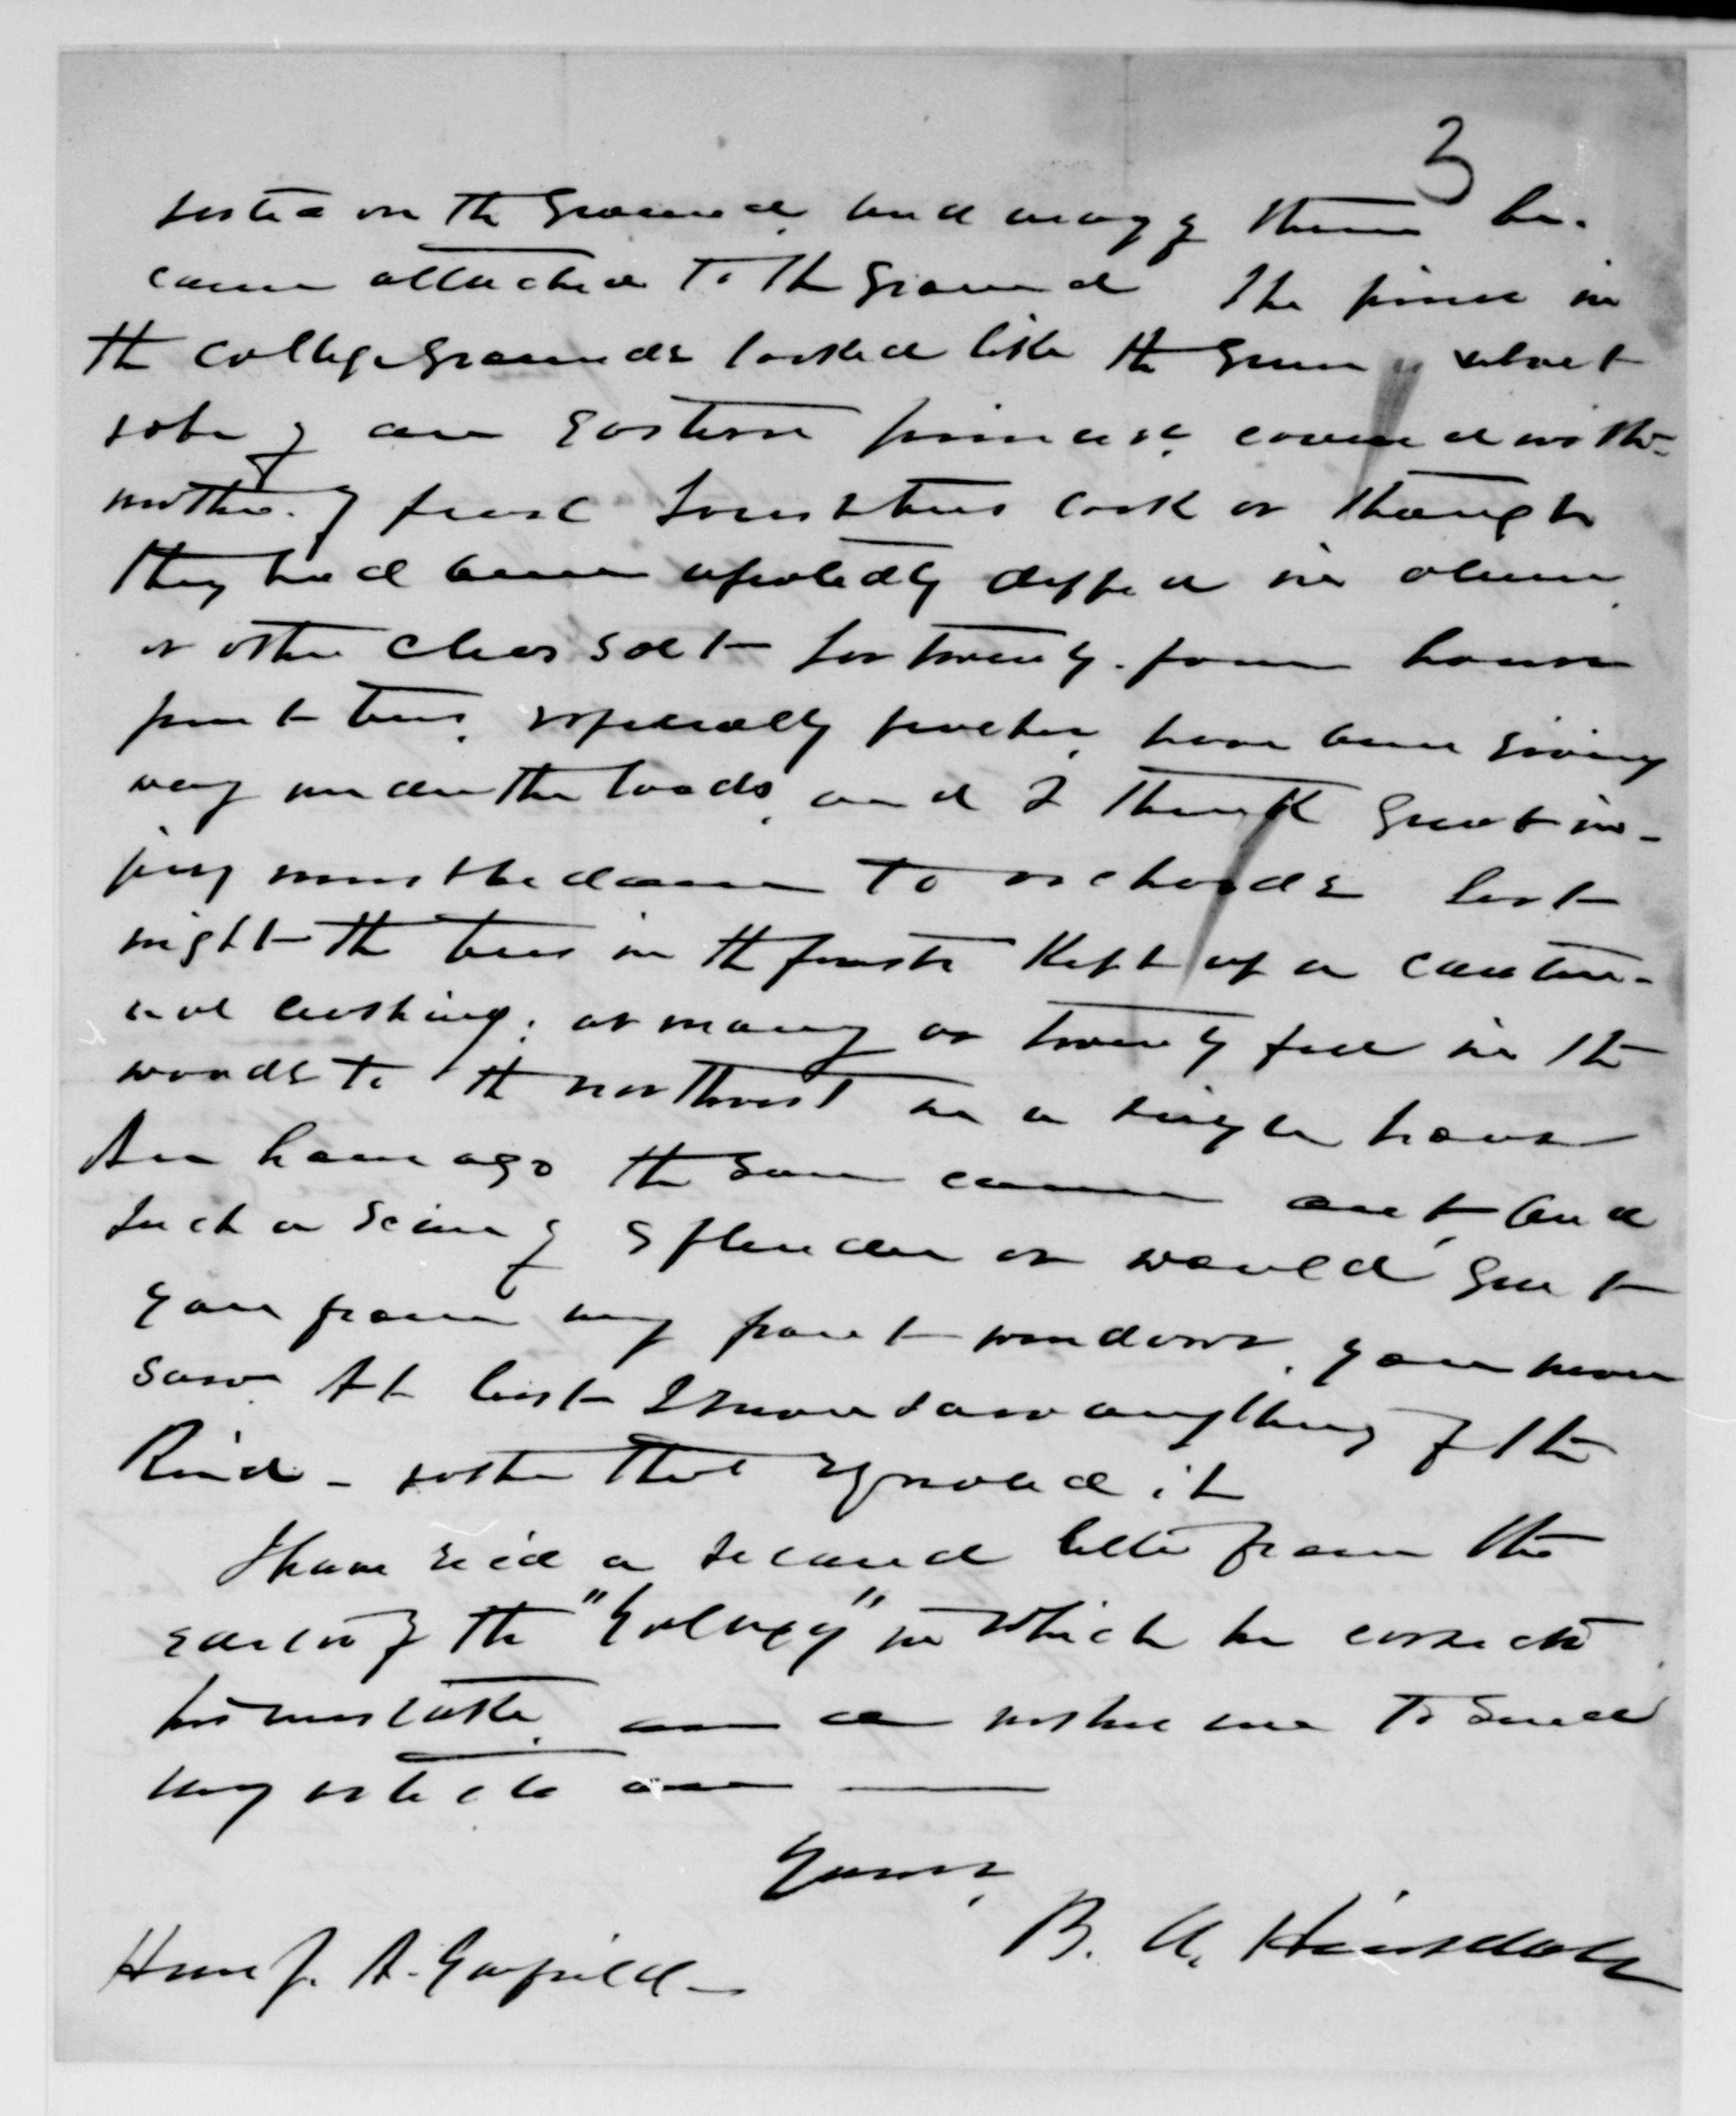 3
rested on the ground, and many of them be-
came attached to the ground The pines in
the college grounds looked like the green velvet
robe of an Eastern princess, covered with
mother of pearl Forest trees look as though
they had been repeatedly dipped in alum,
or other clear salt for twenty-four hours
fruit trees, especially peaches, have been giving
way under the loads, and I think great in-
jury must be done to orchards Last
night the trees in the forests kept up a contin-
ual crashing; as many as twenty fell in the
woods to the northwest in a single hour
An hour ago the sun came out, and
such a scene of splendor as would greet
you from my front windows, you never
saw. At least I never saw anything of the
kind - rather that equaled it
I have rec'd a second letter from the
editor of the "Galaxy" in which he corrects
his mistake, and wishes me to send
my article on
Yours,
B. A. Hinsdale
Hon J. A. Garfield -